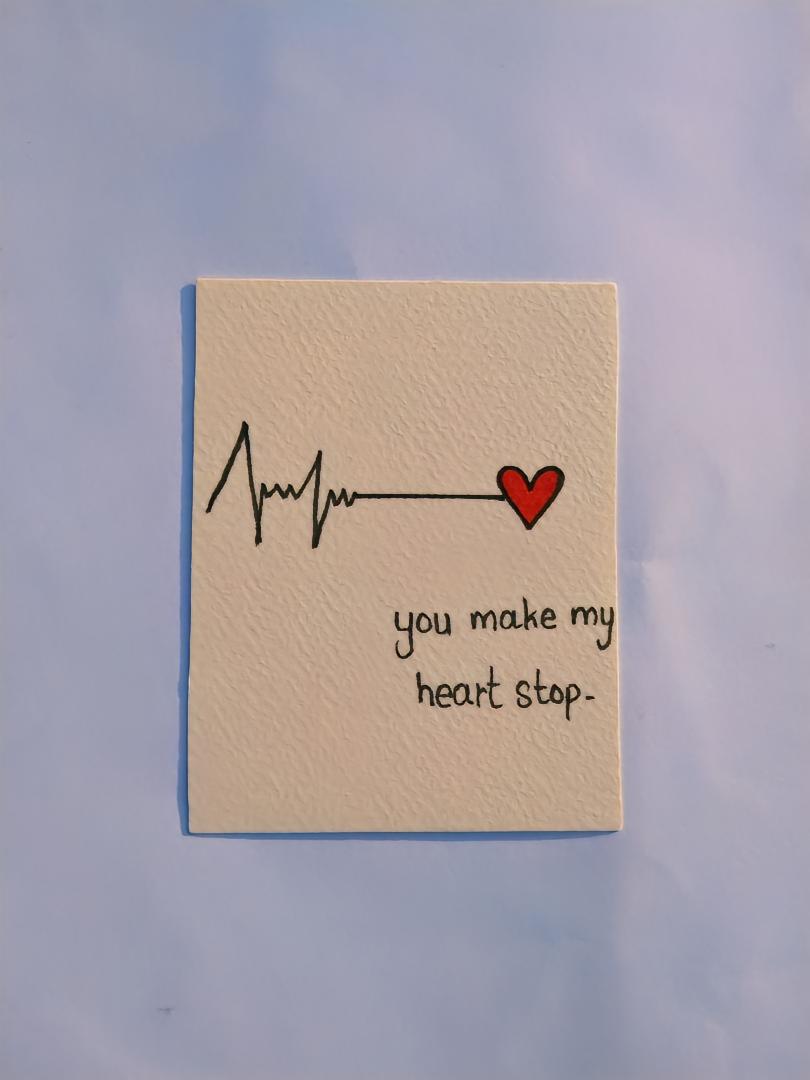 you make my
heart stop-